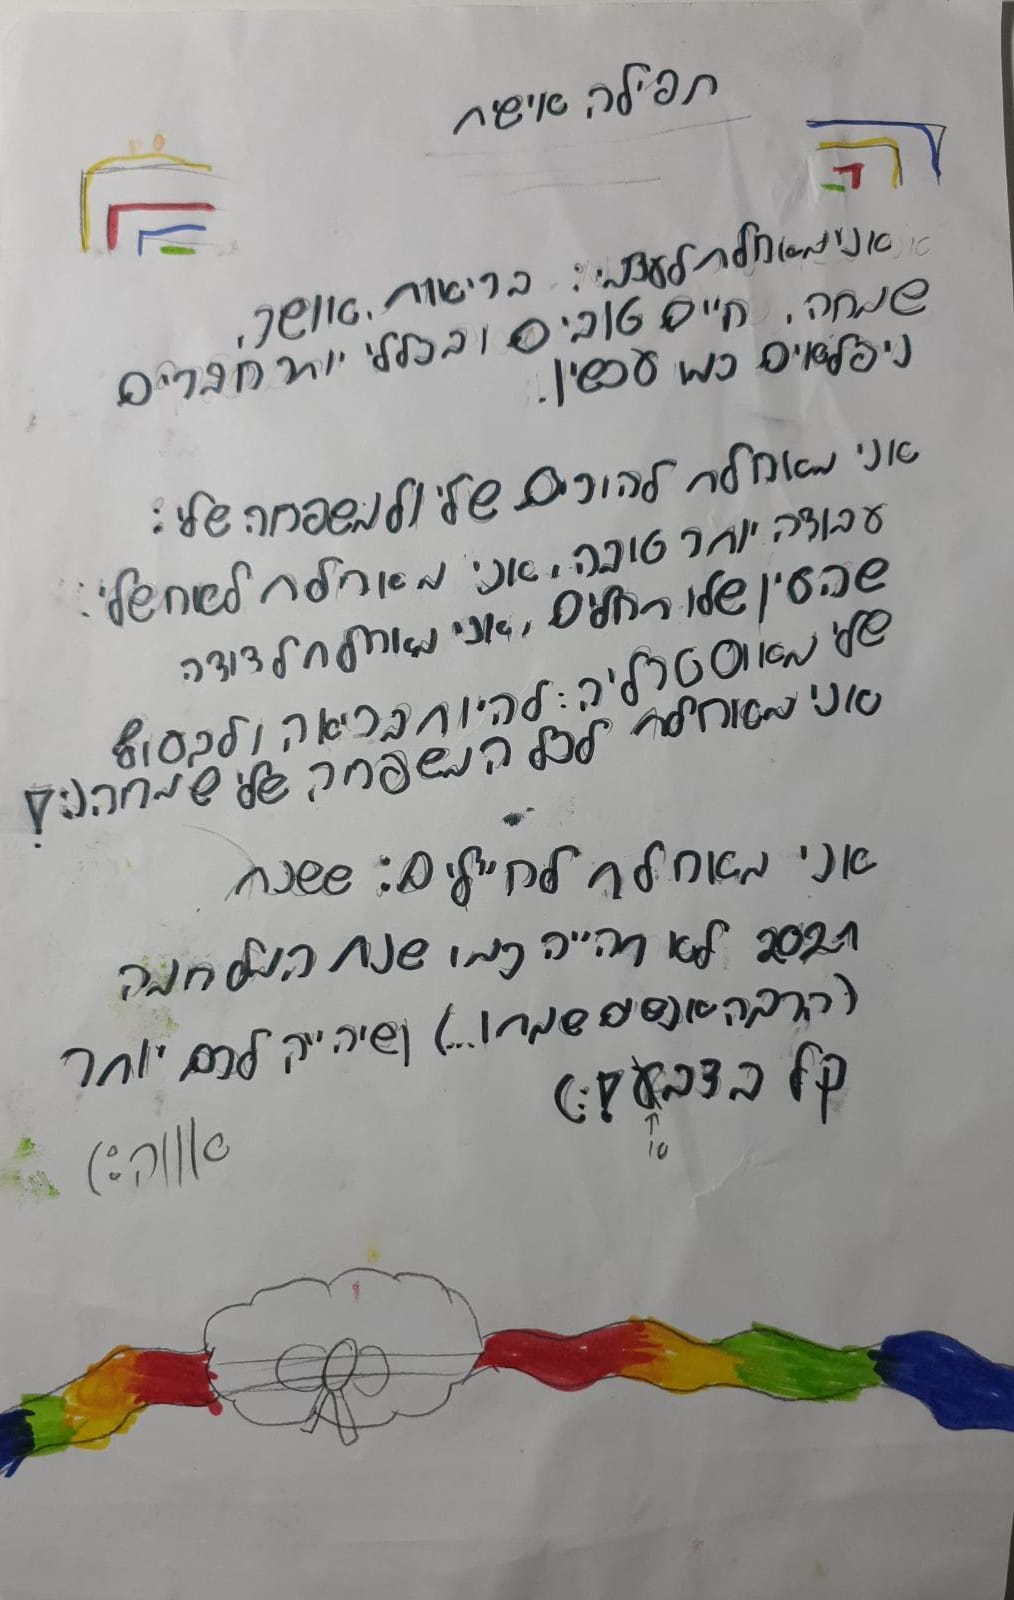 תפילה אישית
אני מאחלת לעצמי: בריאות, אושר,
שמחה, חיים טובים ובכללי יותר חברים
ניפלאים כמו עכשיו.
אני מאחלת להורים שלי ולמשפחה שלי:
עבודה יותר טובה, אני מאחלת לאח שלי:
שהעין שלו תחלים, אני מאחלת לדודה
שלי מאוסטרליה: להיות בריאה ולבסוף
אני מאחלת לכל המשפחה שלי שמחה(:
אני מאחלת לחיילים: ששנת
לא תהייה כמו שנת המלחמה
(הרבה אנשים שמתו...) ושיהייה להם יותר
קל בצבא :)
10